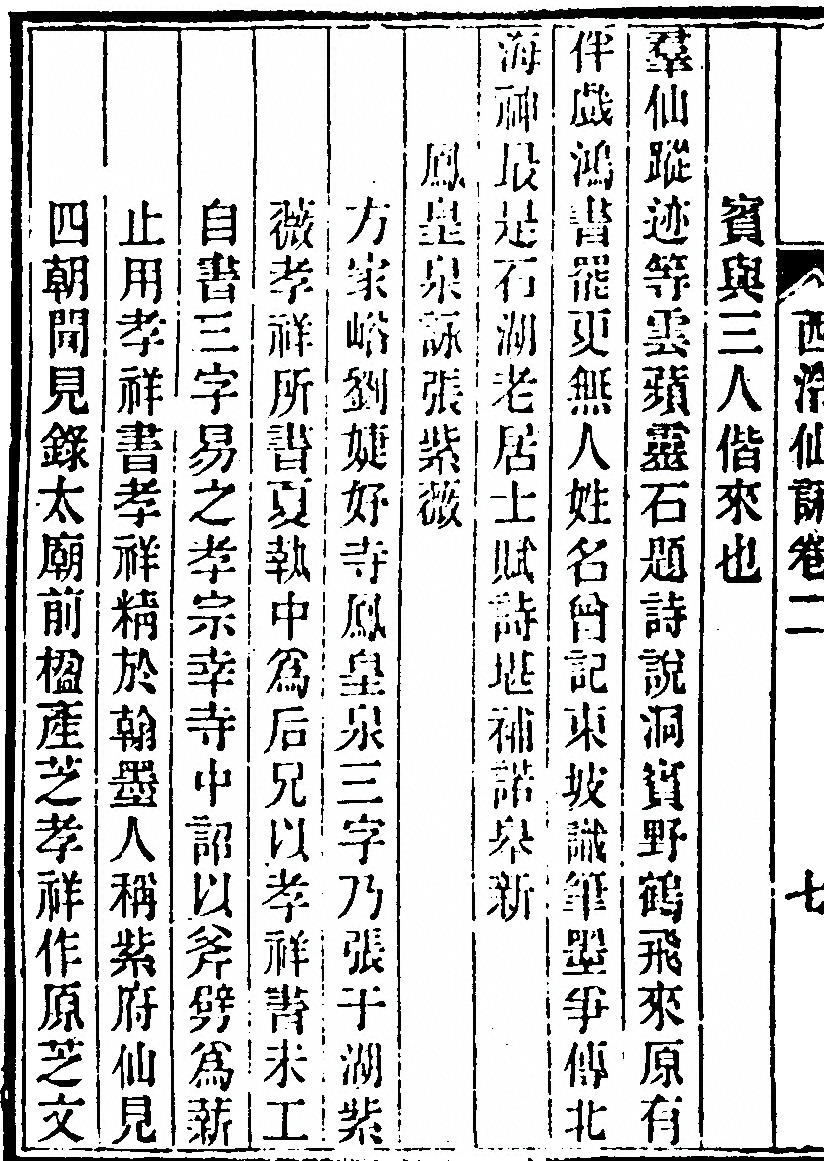 西泠仙詠卷二 七
賓與三人偕來也
羣仙蹤迹等雲蘋靈石題詩說洞賓野鶴飛來原有
伴戲鴻書罷更無人姓名曾記東坡識筆墨爭傳北
海神最是石湖老居士賦詩堪補諾皋新
鳳皇泉詠張紫薇
方家峪劉婕妤寺鳳皇泉三字乃張于湖紫
薇孝祥所書夏執中爲后兄以孝祥書未工
自書三字易之孝宗幸寺中詔以斧劈爲薪
止用孝祥書孝祥精於翰墨人稱紫府仙見
四朝聞見錄太廟前楹產芝孝祥作原芝文